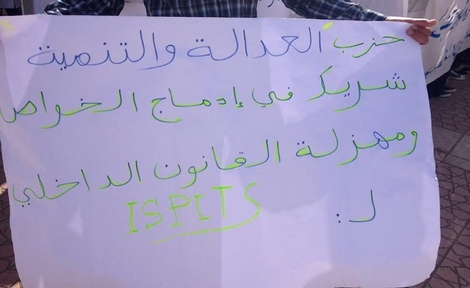 حزب العدالة والتنمية
شريك في إدماج الخواص
ومهزلة القانون الداخلي
ل: ISPITS